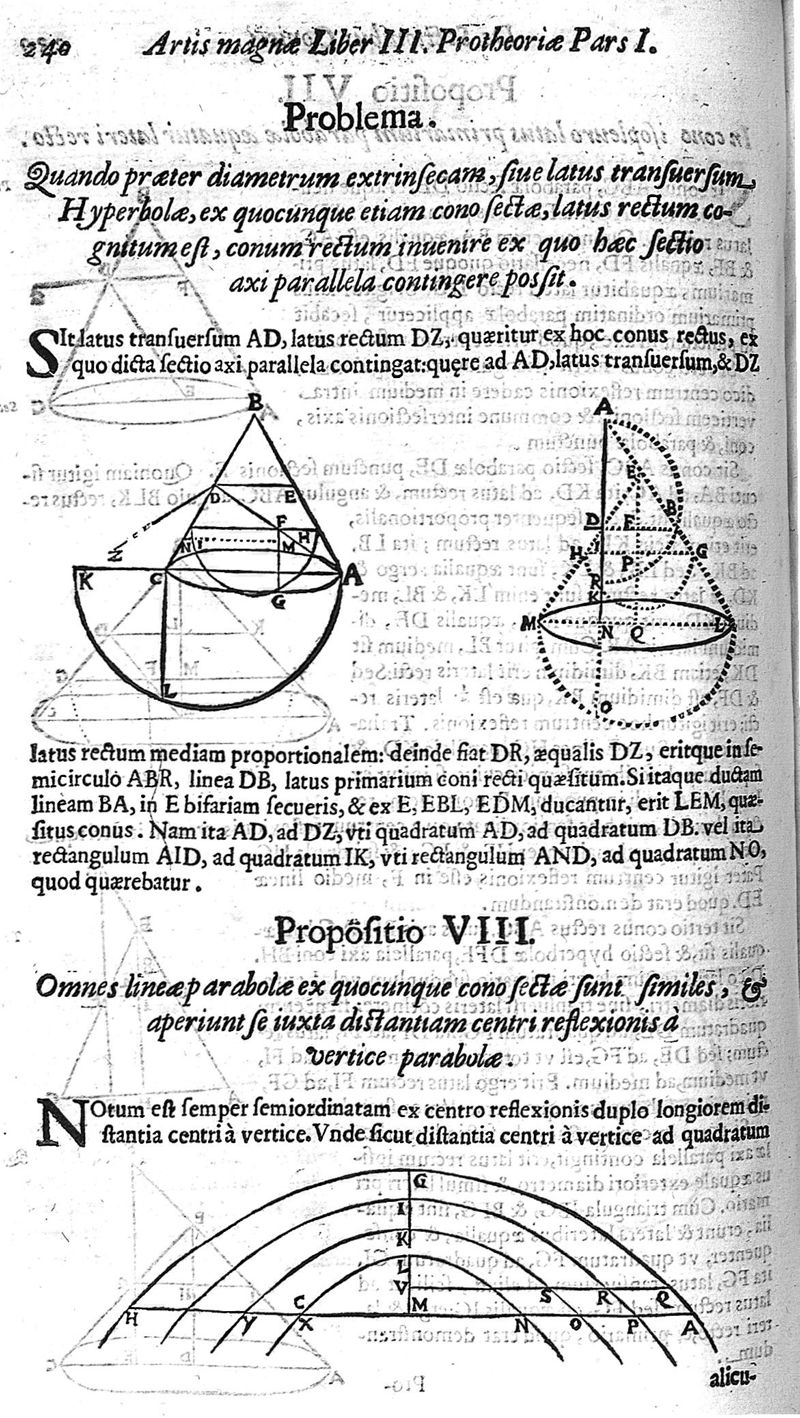 240 Artis magnæ Liber III. Protheoriæ Pars I.
Problema.
Quando præter diametrum extrinſecam, ſiue latus tranſuerſum,
Hyperbolæ, ex quocunque etiam cono ſectæ, latus rectum co-
gnitum eſt, conum rectum inuenire ex quo hæc ſectio
axi parallela contingere poſſit.
SIt latus tranſuerſum AD, latus rectum DZ, quæritur ex hoc conus rectus, ex
quo dicta ſectio axi parallela contingat: quęre ad AD, latus tranſuerſum, & DZ
B
D
E
F
Z
N
I
M
H
K
C
A
G
L
A
E
B
D
F
H
I
G
P
R
K
M
N
Q
L
O
latus rectum mediam proportionalem: deinde fiat DR, æqualis DZ, eritque in ſe-
micirculo ABR, linea DB, latus primarium coni recti quæſitum. Si itaque ductam
lineam BA, in E bifariam ſecueris, & ex E, EBL, EDM, ducantur, erit LEM, quæ-
ſitus conus. Nam ita AD, ad DZ, vti quadratum AD, ad quadratum DB. vel ita
rectangulum AID, ad quadratum IK, vti rectangulum AND, ad quadratum NO,
quod quærebatur.
Propoſitio VIII.
Omnes lineæ parabolæ ex quocunque cono ſectæ ſunt ſimiles, &
aperiunt ſe iuxta diſtantiam centri reflexionis à
vertice parabolæ.
NOtum eſt ſemper ſemiordinatam ex centro reflexionis duplo longiorem di-
ſtantia centri à vertice. Vnde ſicut diſtantia centri à vertice ad quadratum
G
I
K
L
V
S
R
Q
H
Y
C
X
M
N
O
P
A
alicu-